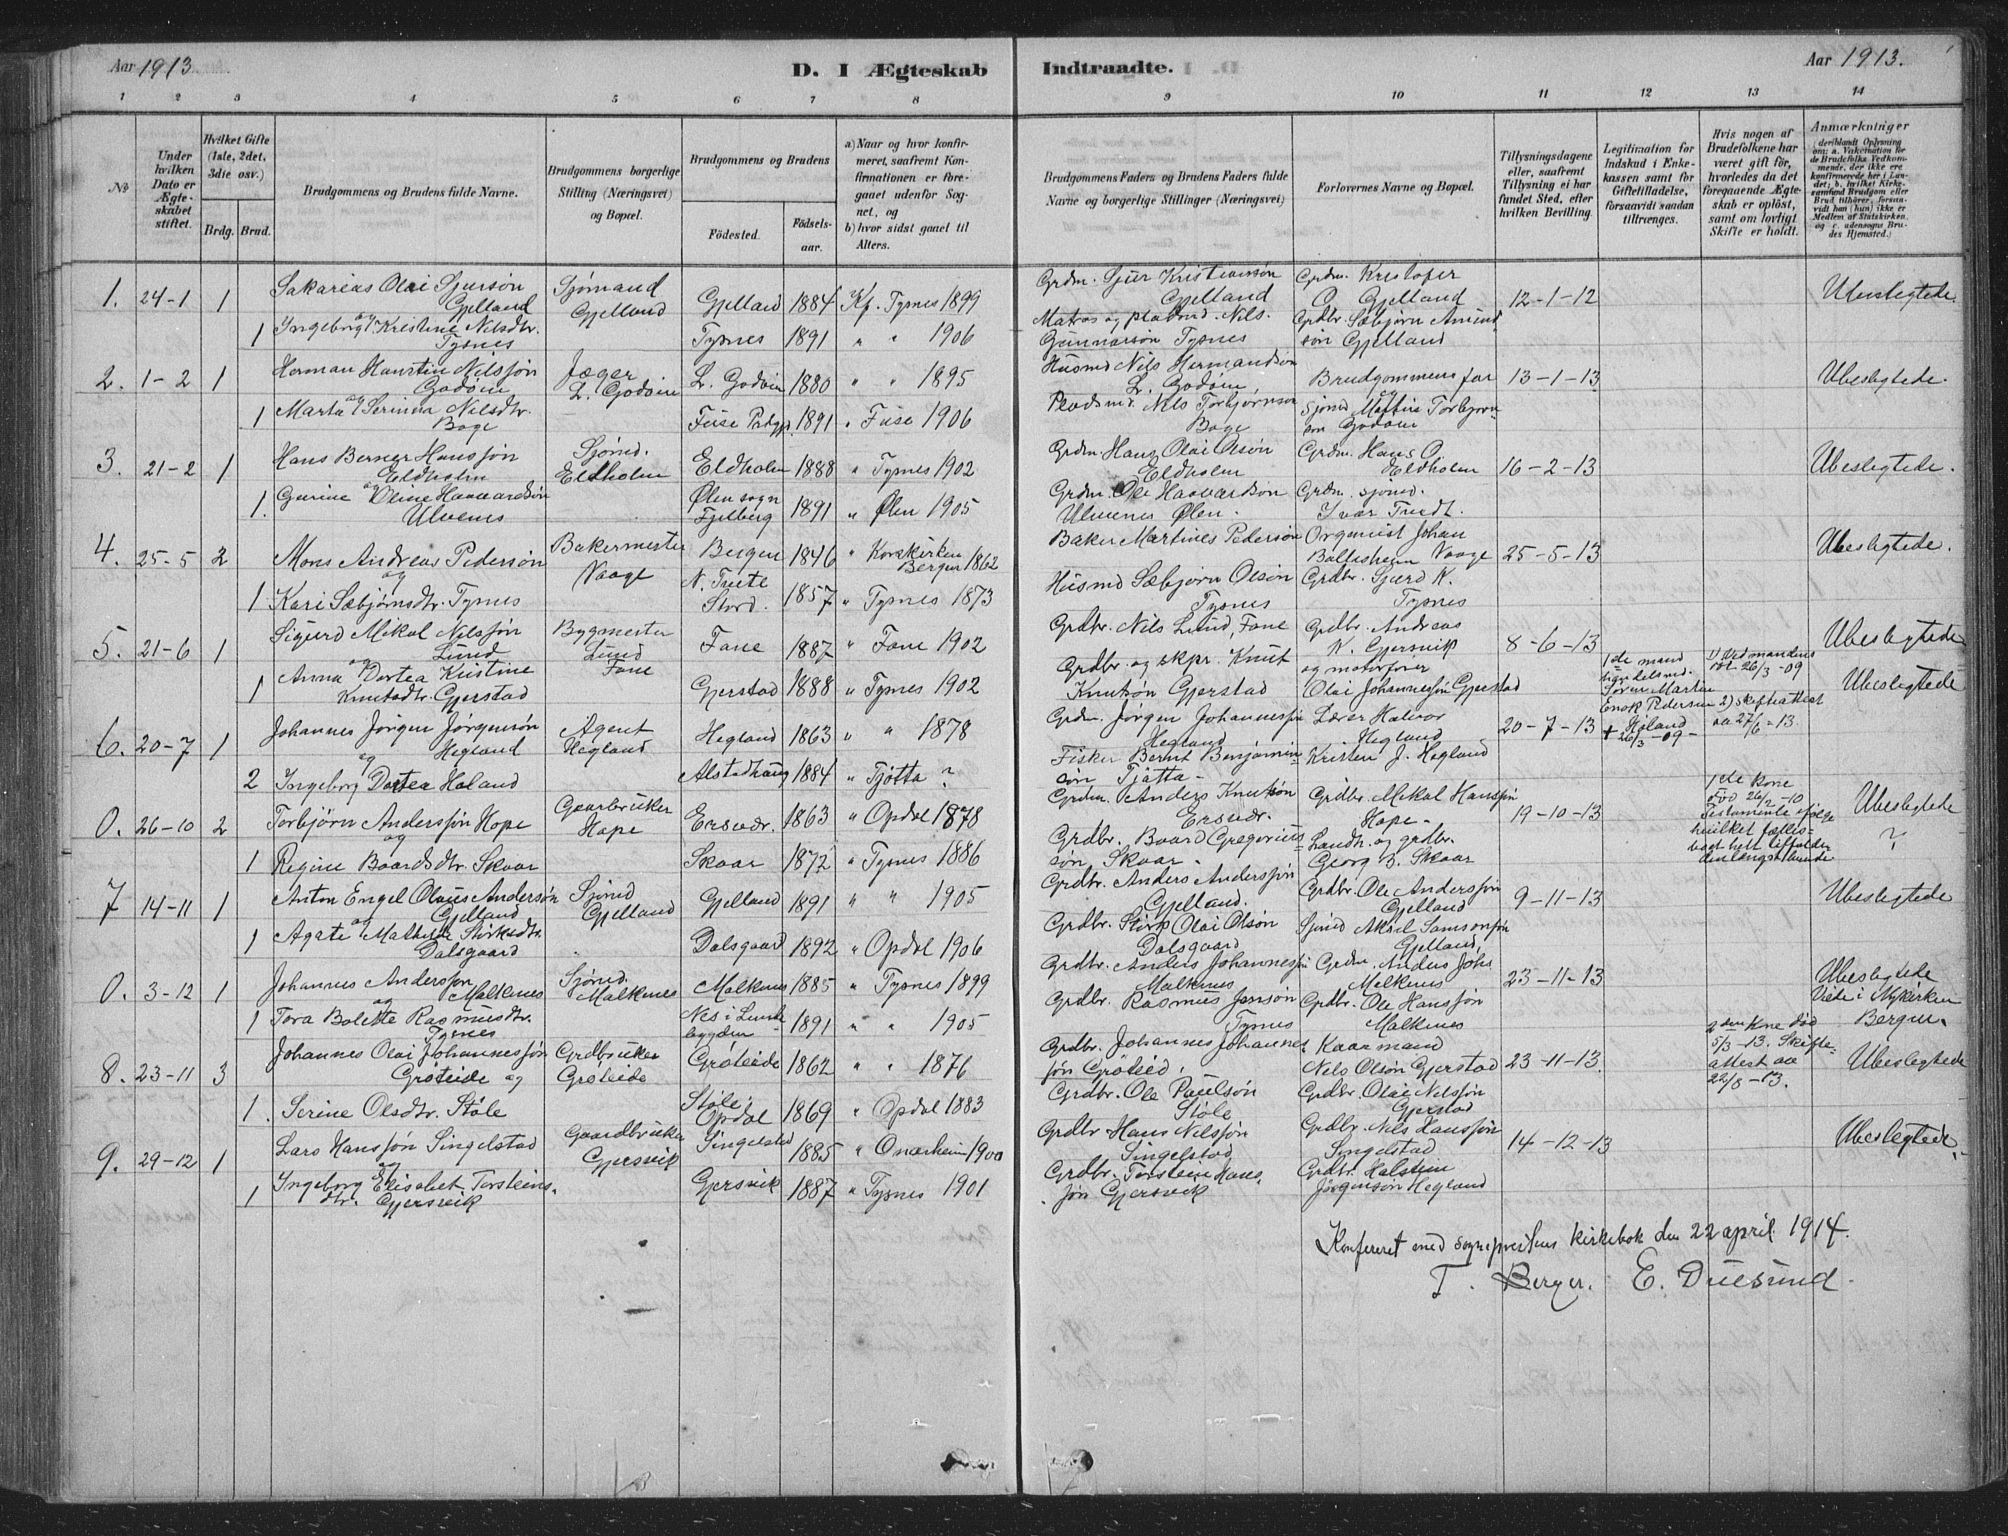 Aar 1913.
D. I Ægteskab Indtraadte.
Aar 1913.
1 2 3 4 5 6 7 8 9 10 11 12 13 14
No
Under hvilken Dato er Ægteskabet stiftet.
Hvilket Gifte (1ste, 2det, 3die osv.)
Brdg. Brud.
Brudgommens og Brudens fulde Navne.
Brudgommens borgerlige Stilling (Næringsvei) og Bopæl.
Brudgommens og Brudens
Fødested.
Fødselsaar.
a) Naar og hvor konfirmeret, saafremt Konfirmationen er foregaaet udenfor Sognet, og
b) hvor sidst gaaet til Alters.
Brudgommens Faders og Brudens Faders fulde Navne og borgerlige Stillinger (Næringsvei)
Forlovernes Navne og Bopæl.
Tillysningsdagene eller, saafremt Tillysning ei har fundet Sted, efter hvilken Bevilling.
Legitimation for Indskud i Enkekassen samt for Giftetilladelse, forsaavidt saadan tiltrænges.
Hvis nogen af Brudefolkene har været gift før, hvorledes da det foregaaende Ægteskab er opløst, samt om lovligt Skifte er holdt.
Anmærkninger
(deriblandt Oplysning om: a. Vakcination for de Brudefolks Vedkommende, der ikke ere konfirmerede her i Landet; b. hvilket Kirkesamfund Brudgom eller Brud tilhører, forsaavidt han (hun) ikke er Medlem af Statskirken, og c. udensogns Brudes Hjemsted.)
1. 24-1 1 Sakarias Olai Sjursøn Gjelland Sjømand Gjelland Gjelland 1884 Kf. Tysnes 1899 Grdm. Sjur Kristiansøn Gjelland Grdm. Kristofer O. Gjelland 12-1-12 Ubeslegtede.
og
1 Ingeborg Kristine Nilsdtr. Tysnes Tysnes 1891 " " 1906 Matros og pladsmd. Nils Gunnarsøn Tysnes Grdbr. Sæbjørn Amundsøn Gjelland
2. 1-2 1 Herman Haustin Nilssøn Godøen Jæger L. Godøen L. Godøen 1880 " " 1895 Husmd Nils Hermandsøn L. Godøen, Brudgommens far 13-1-13 Ubeslegtede.
og
1 Marta Serinna Nilsdtr. Boge Fuse Prdgj. 1891 " Fuse 1906 Pladsmd. Nils Torbjørnsøn Boge og Sjømd Mattias Torbjørnsøn Godøen
3. 21-2 1 Hans Berner Hanssøn Eldholm Sjømd. Eldholm Eldholm 1888 " Tysnes 1902 Grdm. Hans Olai Olsøn Eldholm Grdm. Hans O. Eldholm 16-2-13 Ubeslegtede.
og
1. Gurine Oline Haavardsøn Ulvenes Ølen sogn Fjelberg 1891 " Ølen 1905 Grdm. Ole Haavardsøn Ulvenes Ølen. Grdm. sjømd. Ivar Tvedt.
4. 25-5 2 Mons Andreas Pedersøn Bakermester Vaage Bergen 1846 " Korskirken Bergen 1862 Baker Martines Pedersøn Organist Johan Ballesheim Vaage 25-5-13 Ubeslegtede.
og
1 Kari Sæbjørnsdtr. Tysnes N. Tveite Stord. 1857 " Tysnes 1873 Husmd Sæbjørn Olsøn Tysnes Grdbr. Sjurd K. Tysnes
5. 21-6 1 Sigurd Mikal Nilssøn Lund Bygmester Lund Fane Fane 1887 " Fane 1902 Grdbr. Nils Lund, Fane Grdbr. Andreas K. Gjersvik 8-6-13 Ubeslegtede
og
1 Anna Dortea Kristine Knutsdtr. Gjerstad Gjerstad 1888 " Tysnes 1902 Grdbr. og skpr. Knut Knutsøn Gjerstad og motorfører Olai Johannessøn Gjerstad
6. 20-7 1 Johannes Jørgen Jørgensøn Hegland Agent Hegland Hegland 1863 " " 1878 Grdm. Jørgen Johannessøn Hegland Lærer Halvor Hegland 20-7-13 1ste mand handelsmd. Søren Martin Enok Pedersen Høland † 26/3-09- 1) Ved mandens død 26/3-09 2) Skifteattest aa 27/6-13. Ubeslegtede
og
2 Ingeborg Dortea Høland Alstadhaug 1884 " Tjøtta ? Fisker Bernt Benjaminsøn Tjøtta- Kristen J. Hegland
0. 26-10 2 Torbjørn Anderssøn Hope Gaarbruker Hope Ersvær. 1863 " Opdal 1878 Grdm. Anders Knutsøn Ersvær. Grdbr. Mikal Hanssøn Hope- 19-10-13 1ste kone død 26/2-10 Testamente ifølge hvilket fælles-bo helt tilfalder den længstlevende Ubeslegtede ?
og
1 Regine Baardsdtr. Skaar Skaar 1872 " Tysnes 1886 Grdbr. Baard Gregoriussøn Skaar- Landh. og grdbr. Georg B. Skaar
7 14-11 1 Anton Engel Olaus Andersøn Gjelland Sjømd Gjelland Gjelland 1891 " " 1905 Grdbr. Anders Anderssøn Gjelland. Grdbr. Ole Anderssøn Gjelland 9-11-13 Ubeslegtede
og
1 Agate Mathilde Størksdtr. Dalsgaard Dalsgaard 1892 " Opdal 1906 Grdbr. Størk Olai Olsøn Dalsgaard Sjømd Aksel Samsonsøn Gjelland,
0. 3-12 1 Johannes Anderssøn Malkenes Sjømd. Malkenes Malkenes 1885 " Tysnes 1899 Grdbr. Anders Johannessøn Malkenes Grdm. Anders Johs Malkenes 23-11-13 Ubeslegtede Viede i Nykirken Bergen.
og
1 Tora Bolette Rasmusdtr. Tysnes Nes i Lundebygden 1891 " " 1905 Grdbr. Rasmus Jensøn Tysnes Grdbr. Ole Hanssøn Malkenes
8. 23-11 3 Johannes Olai Johannessøn Grøteide og Grdbruker Grøteide Grøteide 1862 " " 1876 Grdbr. Johannes Johannessøn Grøteid, Kaarmand Nils Olsøn Gjerstad 23-11-13. 2den Kone død 5/3-13. Skifteattest aa 22/8-13. Ubeslegtede
1. Serine Olsdtr. Støle Støle, Opdal 1869 " Opdal 1883 Grdbr. Ole Paulsøn Støle Grdbr. Olai Nilssøn Gjerstad
9. 29-12 1 Lars Hanssøn Singelstad Gaardbruker Gjersvik Singelstad 1885 " Onarheim 1900 Grdbr Hans Nilssøn Singelstad Grdbr. Nils Hanssøn Singelstad 14-12-13 Ubeslegtede.
og
1 Ingeborg Elisabet Torsteinsdtr. Gjersvik Gjersvik 1887 " Tysnes 1901 Grdbr. Torstein Hanssøn Gjersvik Grdbr. Halstein Jørgensøn Hegland
Konfereret med sogneprestens kirkebok den 22 april 1914.
T. Berger. E. Duesund.